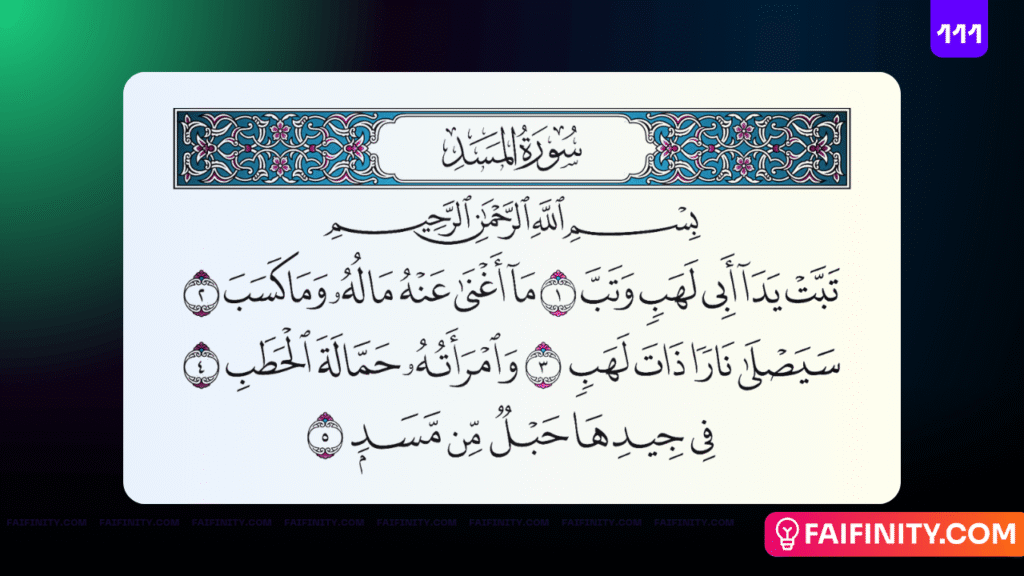 111
سُورَةُ المَسَدِ
بِسْمِ ٱللَّهِ ٱلرَّحْمَٰنِ ٱلرَّحِيمِ
تَبَّتْ يَدَآ أَبِى لَهَبٍ وَتَبَّ ١ مَآ أَغْنَىٰ عَنْهُ مَالُهُۥ وَمَا كَسَبَ ٢
سَيَصْلَىٰ نَارًا ذَاتَ لَهَبٍ ٣ وَٱمْرَأَتُهُۥ حَمَّالَةَ ٱلْحَطَبِ ٤
فِى جِيدِهَا حَبْلٌ مِّن مَّسَدٍۭ ٥
FAIFINITY.COM FAIFINITY.COM FAIFINITY.COM FAIFINITY.COM FAIFINITY.COM FAIFINITY.COM FAIFINITY.COM FAIFINITY.COM
FAIFINITY.COM